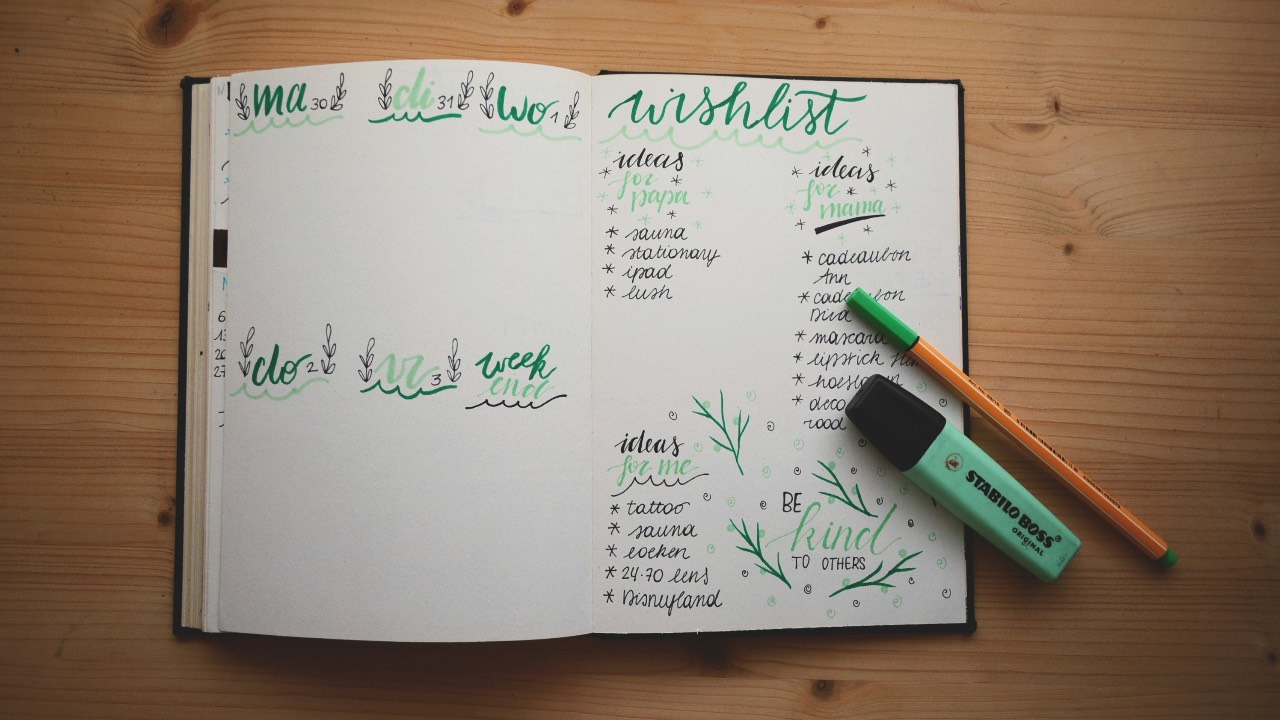 ma 30
di 31
wo 1
do 2
vr 3
week
end
wishlist
ideas
for
papa
* sauna
* stationary
* ipad
* lush
ideas
for
mama
* cadeaubon
Ann
*
* mascara
* lipstick
* deco
rood
ideas
for me
* tattoo
* sauna
* boeken
* 24-70 lens
* Disneyland
BE
kind
TO OTHERS
STABILO BOSS
ORIGINAL
6
13
20
27